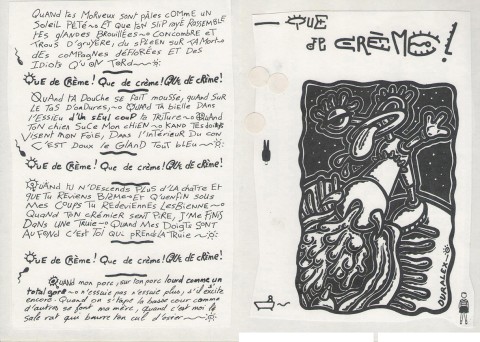 Quand tes Morveux sont pâles comme un
soleil pété ~ Et que ton slip rayé rassemble
tes glandes brouillées ~ concombre et
trous d'gruyère, du spleen sur ta mort
des compagnes déflorées et des
idiots qu'on tord ~
Que de crème! Que de crème! Que de crème!
Quand ta douche se fait mousse, quand sur
le tas d'ganivres, ~ quand ta bielle dans
l'essieu d'un seul coup la triture ~ quand
ton chien suce mon chien ~ kand tes doigts
visent mon foie, dans l'intérieur du con
c'est doux le gland tout bleu ~
Que de crème! Que de crème! Que de crème!
Quand tu n'descends plus d'la et
que tu reviens et qu'enfin sous
mes coups tu redeviennes lesbienne ~
Quand ton crémier sent pire, j'me finis
dans une truie ~ Quand mes doigts sont
au fond c'est toi qui prend la truie ~
Que de crème! Que de crème! Que de crème!
Quand mon porc, sur ton porc lourd comme un
total ~ n'essaie pas n'essaie plus, s'il
encore. Quand on s'tape la basse cour comme
d'autres se font ma mère, quand c'est moi le
sale rat qui beurre ton cul d'
QUE
de CRÈME!
OURALEX